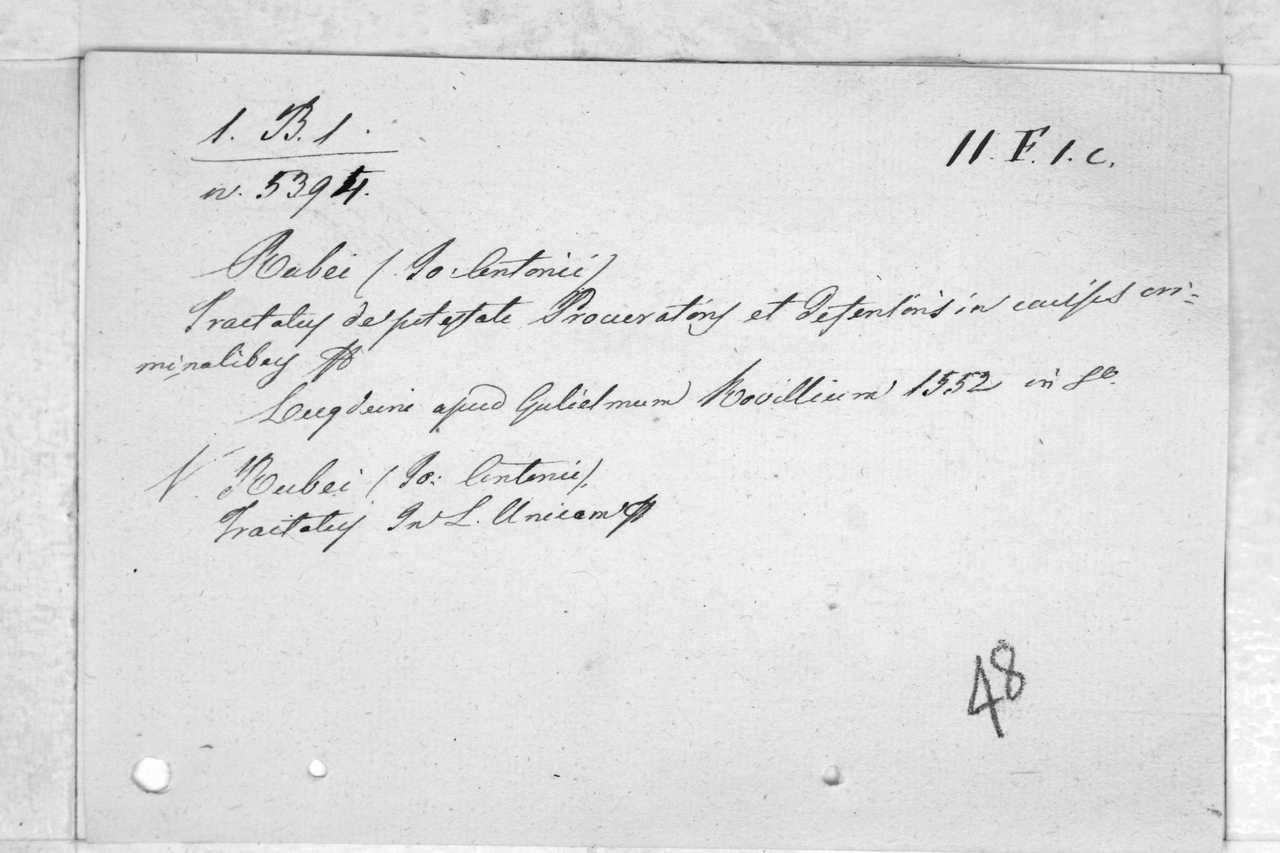 1. B. 1.
n. 5394.
II. F. 1. c.
Rubei (Jo: Antonii)
Tractatus de potestate Procuratoris et Defensoris in causis cri=
minalibus
Lugduni apud Gulielmum Rovillium 1552 in 8º.
V. Rubei (Jo: Antonii).
Tractatus In L. Unicam
48